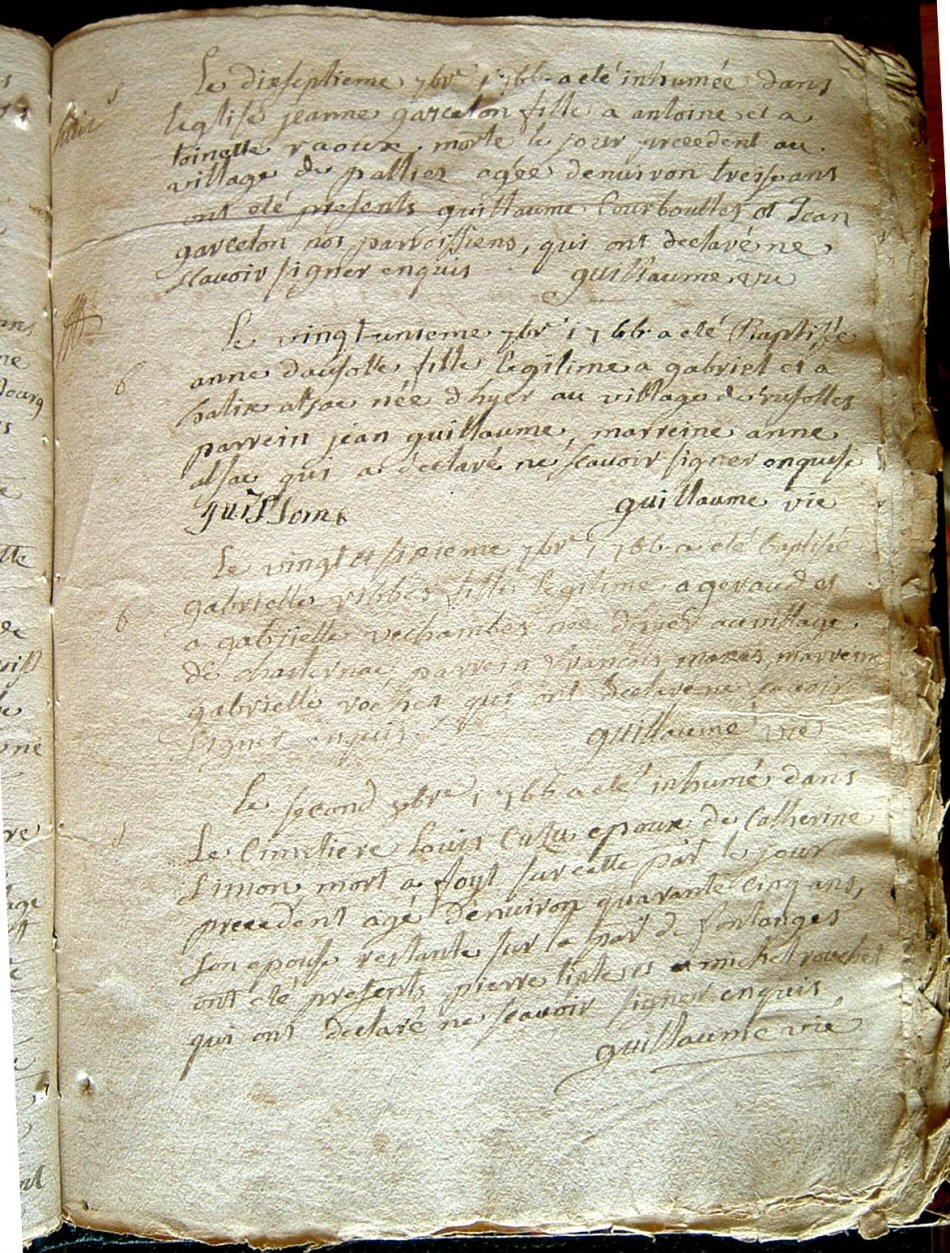 Le dixseptieme 7bre 1766 a eté inhumée dans
l'eglise jeanne garcelon fille a antoine et a
toinette raoux morte le jour precedent au
village de pallier agée denviron treize ans
ont eté presents guillaume Courboulles et Jean
garcelon nos parroissiens, qui ont declaré ne
scavoir signer enquis guillaume vic
Le vingt unieme 7bre 1766 a eté Baptisée
6
anne dausolle fille legitime a gabriel et a
alsac née dhyer au village de
parrein jean guillaume, marreine anne
alsac qui a declaré ne scavoir signer enquise
guillaume vic
Le vingt et sixieme 7bre 1766 a eté baptisée
gabrielle ribbes fille legitime a geraud et
6
a gabrielle vechambes née dhyer au village
de parrein francois marreine
gabrielle roches qui ont declaré ne scavoir
signer enquis. guillaume vic
Le second 1766 a eté inhumé dans
Le Cimetiere Louis epoux de Catherine
Simon mort a foyt sur cette parr le jour
precedent agé denviron quarante cinq ans,
son epouse restante sur la parr de fontanges
ont eté presents pierre et michel rouchet
qui ont declaré ne scavoir signer enquis
guillaume vic